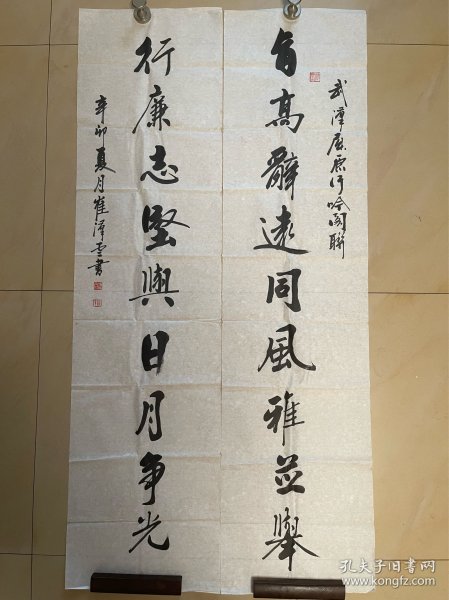 武汉屈原行吟阁联
旨高辭远同風雅並舉
行廉志堅與日月争光
辛卯夏月崔漢雲書
孔夫子旧书网
www.kongfz.com